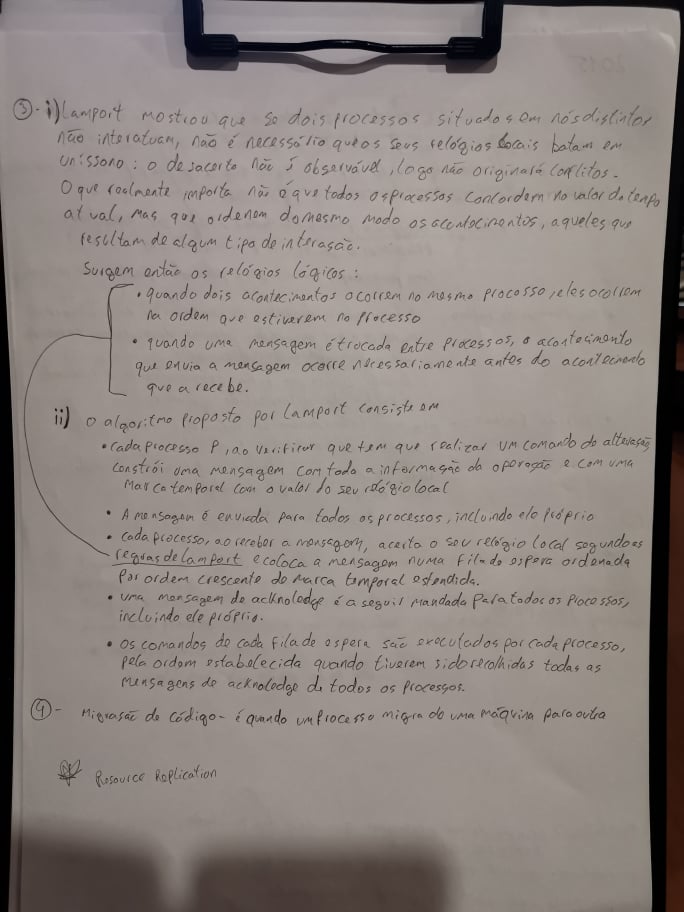 2015
③-i) Lamport mostrou que se dois processos situados em nós distintos
não interatuam, não é necessário que os seus relógios locais batam em
uníssono: o desacerto não é observável, logo não originará conflitos.
O que realmente importa não é que todos os processos concordem no valor do tempo
atual, mas que ordenem do mesmo modo os acontecimentos, aqueles que
resultam de algum tipo de interação.
Surgem então os relógios lógicos:
• quando dois acontecimentos ocorrem no mesmo processo, eles ocorrem
na ordem que estiverem no processo
• quando uma mensagem é trocada entre processos, o acontecimento
que envia a mensagem ocorre necessariamente antes do acontecimento
que a recebe.
ii) O algoritmo proposto por Lamport consiste em
• Cada processo P, ao verificar que tem que realizar um comando de alteração,
constrói uma mensagem com toda a informação da operação e com uma
Marca temporal com o valor do seu relógio local
• A mensagem é enviada para todos os processos, incluindo ele próprio
• Cada processo, ao receber a mensagem, acerta o seu relógio local segundo as
regras de lamport e coloca a mensagem numa fila de espera ordenada
por ordem crescente de marca temporal estendida.
• uma mensagem de acknoledge é a seguir mandada para todos os processos,
incluindo ele próprio.
• Os comandos de cada fila de espera são executados por cada processo,
pela ordem estabelecida quando tiverem sido recolhidas todas as
mensagens de acknoledge de todos os processos.
④- Migração de código - é quando um processo migra de uma máquina para outra
Resource Replication